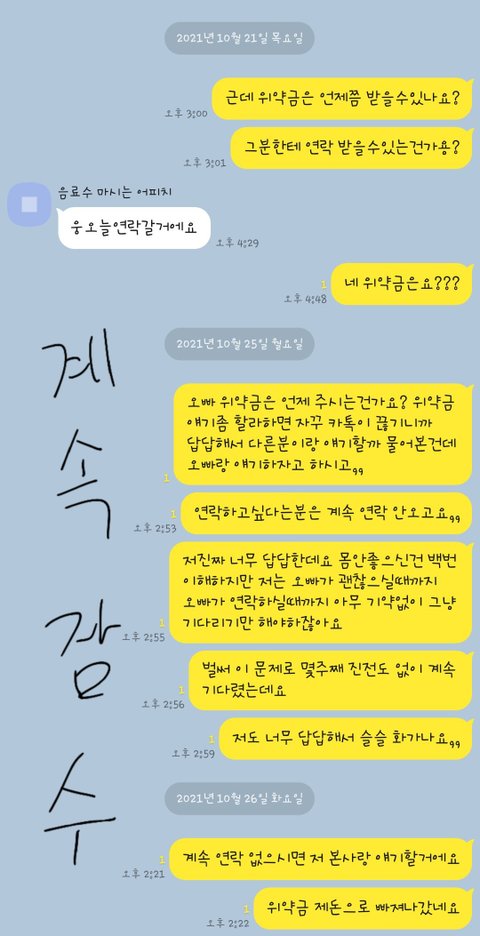 2021년 10월 21일 목요일
근데 위약금은 언제쯤 받을수있나요?
오후 3:00
그분한테 연락 받을수있는건가용?
오후 3:01
음료수 마시는 어피치
웅오늘연락갈거에요
오후 4:29
네 위약금은요???
1
오후 4:48
2021년 10월 25일 월요일
오빠 위약금은 언제 주시는건가요? 위약금
얘기좀 할라하면 자꾸 카톡이 끊기니까
답답해서 다른분이랑 얘기할까 물어본건데
오빠랑 얘기하자고 하시고,,
1
연락하고싶다는분은 계속 연락 안오고요,,
1
오후 2:53
저진짜 너무 답답한데요 몸안좋으신건 백번
이해하지만 저는 오빠가 괜찮으실때까지
오빠가 연락하실때까지 아무 기약없이 그냥
기다리기만 해야하잖아요
1
오후 2:55
벌써 이 문제로 몇주째 진전도 없이 계속
기다렸는데요
1
오후 2:56
저도 너무 답답해서 슬슬 화가나요,,
1
오후 2:59
2021년 10월 26일 화요일
계속 연락 없으시면 저 본사랑 얘기할거에요
1
오후 2:21
위약금 제돈으로 빠져나갔네요
1
오후 2:22
계
속
잠
수